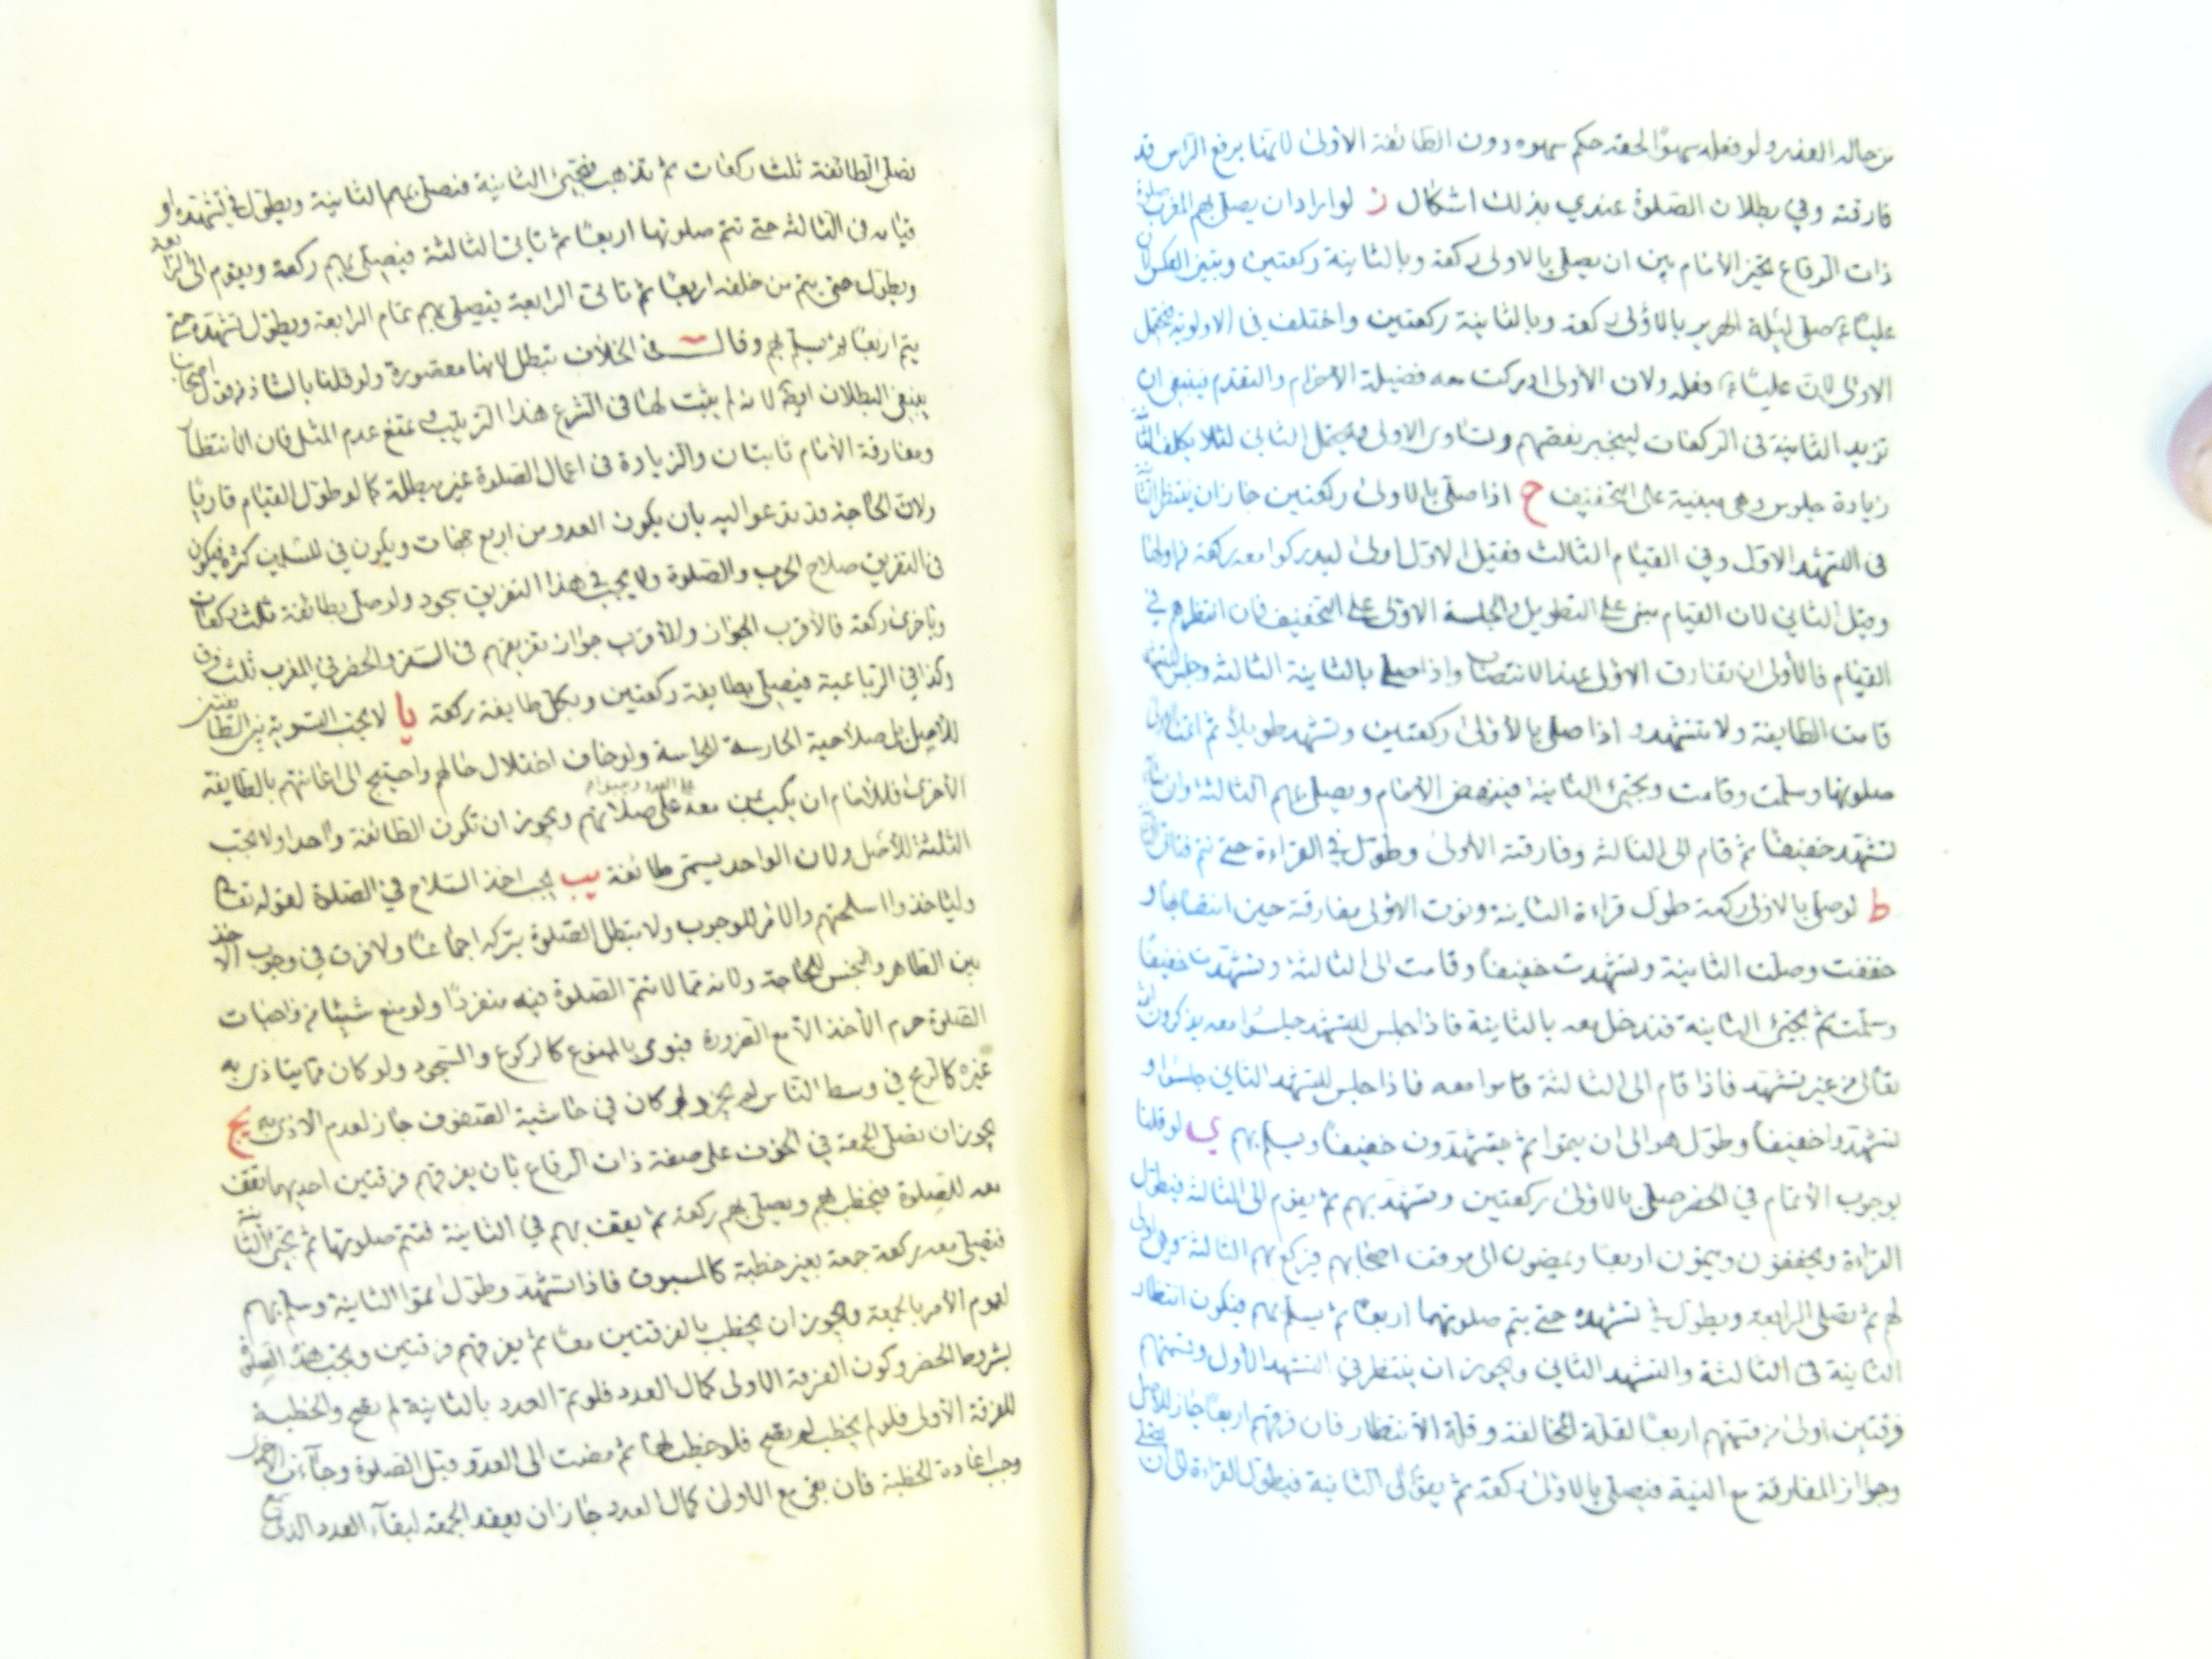 من حاله العذر ولو فعله سهوًا لحقه حكم سهوه دون الطائفة الأولى لانها برفع الراس قد
فارقته وفي بطلان الصلوة عندي بذلك اشكال ز لو اراد ان يصلي بهم المغرب صلوة
ذات الرقاع تخير الأمام بين ان يصلي بالاولى ركعة وبالثانية ركعتين وبين العكس لان
عليًا ع صلى ليلة الهرير بالأولى ركعة وبالثانية ركعتين واختلف في الاولوية فيحتمل
الاولى لان عليًا ع فعله ولان الأولى ادركت معه فضيلة الاحرام والتقدم فينبغي ان
تزيد الثانية في الركعات لينجبر نقصهم وتساوى الاولى ويحتمل الثاني لئلا يكلف الثا
زيادة جلوس وهي مبنية على التخفيف ح اذا صلى بالاولى ركعتين جاز ان ينتظر الثا
في التشهد الاول وفي القيام الثالث فقيل الاول اولى ليدركوا معه ركعة من اولها
وقيل الثاني لان القيام مبني على التطويل والجلسة الاولى على التخفيف فان انتظرهم في
القيام فالأولى ان تفارق الاولى عند الانتصاب واذا صلى بالثانية الثالثة وجلس للتشهد
قامت الطايفة ولا تتشهد و اذا صلى بالأولى ركعتين وتشهد طويلا ثم اتمت الاولى
صلوتها وسلمت وقامت وتجيئ الثانية فينهض الأمام ويصلي بهم الثالثة وان شاء
تشهد خفيفًا ثم قام الى الثالثة وفارقته الأولى وطول في القراءة حتى تتم فتأتي
ط لو صلى بالاولى ركعة طول قراءة الثانية ونوت الاولى مفارقة حين انتصابها و
خففت وصلت الثانية وتشهدت خفيفًا وقامت الى الثالثة وتشهدت خفيفًا
وسلمت ثم تجيئ الثانية فتدخل معه بالثانية فاذا جلس للتشهد جلسوا معه يذكرون الله
تعالى من غير تشهد فاذا قام الى الثالثة قاموا معه فاذا جلس للتشهد الثاني جلسوا و
تشهدوا خفيفًا وطول هو الى ان يتموا ثم يتشهدون خفيفًا ويسلم بهم ي لو قلنا
بوجوب الأتمام في الحضر صلى بالاولى ركعتين وتشهد بهم ثم يقوم الى الثالثة فيطول
القراءة ويخففون ويتمون اربعًا ويمضون الى موقف اصحابهم فيركع بهم الثالثة وهي اولى
لهم ثم يصلى الرابعة ويطول في تشهده حتى يتم صلوتهما اربعًا ثم يسلم بهم فيكون انتظار
الثانية في الثالثة والتشهد الثاني ويجوز ان ينتظر في التشهد الأول وقسمتهم
فرقتين اولى من قسمتهم اربعًا لقلة المخالفة وقلة الأنتظار فان فرقهم اربعًا جاز للأصل
وجواز المفارقة مع النية فيصلي بالاولى ركعة ثم يقف الى الثانية فيطول القراءة الى ان يصلي
تصلي الطائفة ثلث ركعات ثم تذهب فتجيئ الثانية فيصلي بهم الثانية ويطول في تشهده او
قيامه في الثالثة حتى تتم صلوتها اربعًا ثم تأتي الثالثة فيصلي بهم ركعة ويقوم الى الرابعة
ويطول حتى يتم من خلفه اربعًا ثم تأتي الرابعة فيصلي بهم تمام الرابعة ويطول تشهده حتى
يتم اربعًا ثم يسلم بهم وقال في الخلاف تبطل لانها مقصورة ولو قلنا بالشاذ من قول اصحابنا
ينبغي البطلان ايضًا لانه لم يثبت لها في الشرع هذا الترتيب عقغ عدم المثل فان الأنتظار
ومفارقة الأمام ثابتان والزيادة في اعمال الصلوة غير مبطلة كما لو طول القيام قارئا
ولان الحاجة قد تدعو اليه بان يكون العدو من اربع جهات ويكون في المسلمين كثرة فيكون
في التفريق صلاح الحرب والصلوة ولا يجب في هذا التفريق سجود ولو صلى بطائفة ثلث ركعات
وباخرى ركعة فالأقرب الجواز وللأقرب جواز تفريقهم في السفر والحضر في المغرب ثلث فرق
وكذا في الرباعية فيصلي بطايفة ركعتين وبكل طايفة ركعة يا لا تجب التسوية بين الطائفتين
للأصل بل صلاحية الحارسة للحراسة ولو خاف اختلال حالهم واحتيج الى اعانتهم بالطايفة
الأخرى فللأمام ان يكب بمن معه على العدو ويبنوا على صلاتهم ويجوز ان تكون الطائفة واحدا ولا يجب
الثلثة للأصل ولان الواحد يسمى طائفة يب يجب اخذ السلاح في الصلوة لقوله تعالى
وليأخذوا اسلحتهم والأمر للوجوب ولا تبطل الصلوة بتركه اجماعًا ولا فرق في وجوب الأخذ
بين الطاهر والنجس للحاجة ولانه مما لا تتم الصلوة فيه منفردًا ولو منع شيئا من واجبات
الصلوة حرم الأخذ الا مع الضرورة فيومي بالممنوع كالركوع والسجود ولو كان مما يتاذى به
غيره كالرمح في وسط الناس لم يجز ولو كان في حاشية الصفوف جاز لعدم الاذى به يج
يجوز ان تصلى الجمعة في الخوف على صفة ذات الرقاع بان يفرقهم فرقتين احديهما تقف
معه للصلوة فيخطب بهم ويصلي بهم ركعة ثم يقف بهم في الثانية فتتم صلوتها ثم تجيئ الثانية
فتصلي معه ركعة جمعة بغير خطبة كالمسبوق فاذا تشهد وطول اتموا الثانية وسلم بهم
لعموم الأمر بالجمعة ويجوز ان يخطب بالفرقتين معًا ثم يفرقهم فرقتين ويجب هذه الصلوة
بشروط الحضر وكون الفرقة الاولى كمال العدد فلو تم العدد بالثانية لم تصح والخطبة
للفرقة الأولى فلو لم يخطب لم تصح فلو خطب لها ثم مضت الى العدو قبل الصلوة وجاءت الاخرى
وجب اعادة الخطبة فان بقي مع الاولى كمال العدد جاز ان يعقد الجمعة لبقاء العدد الذي سمع